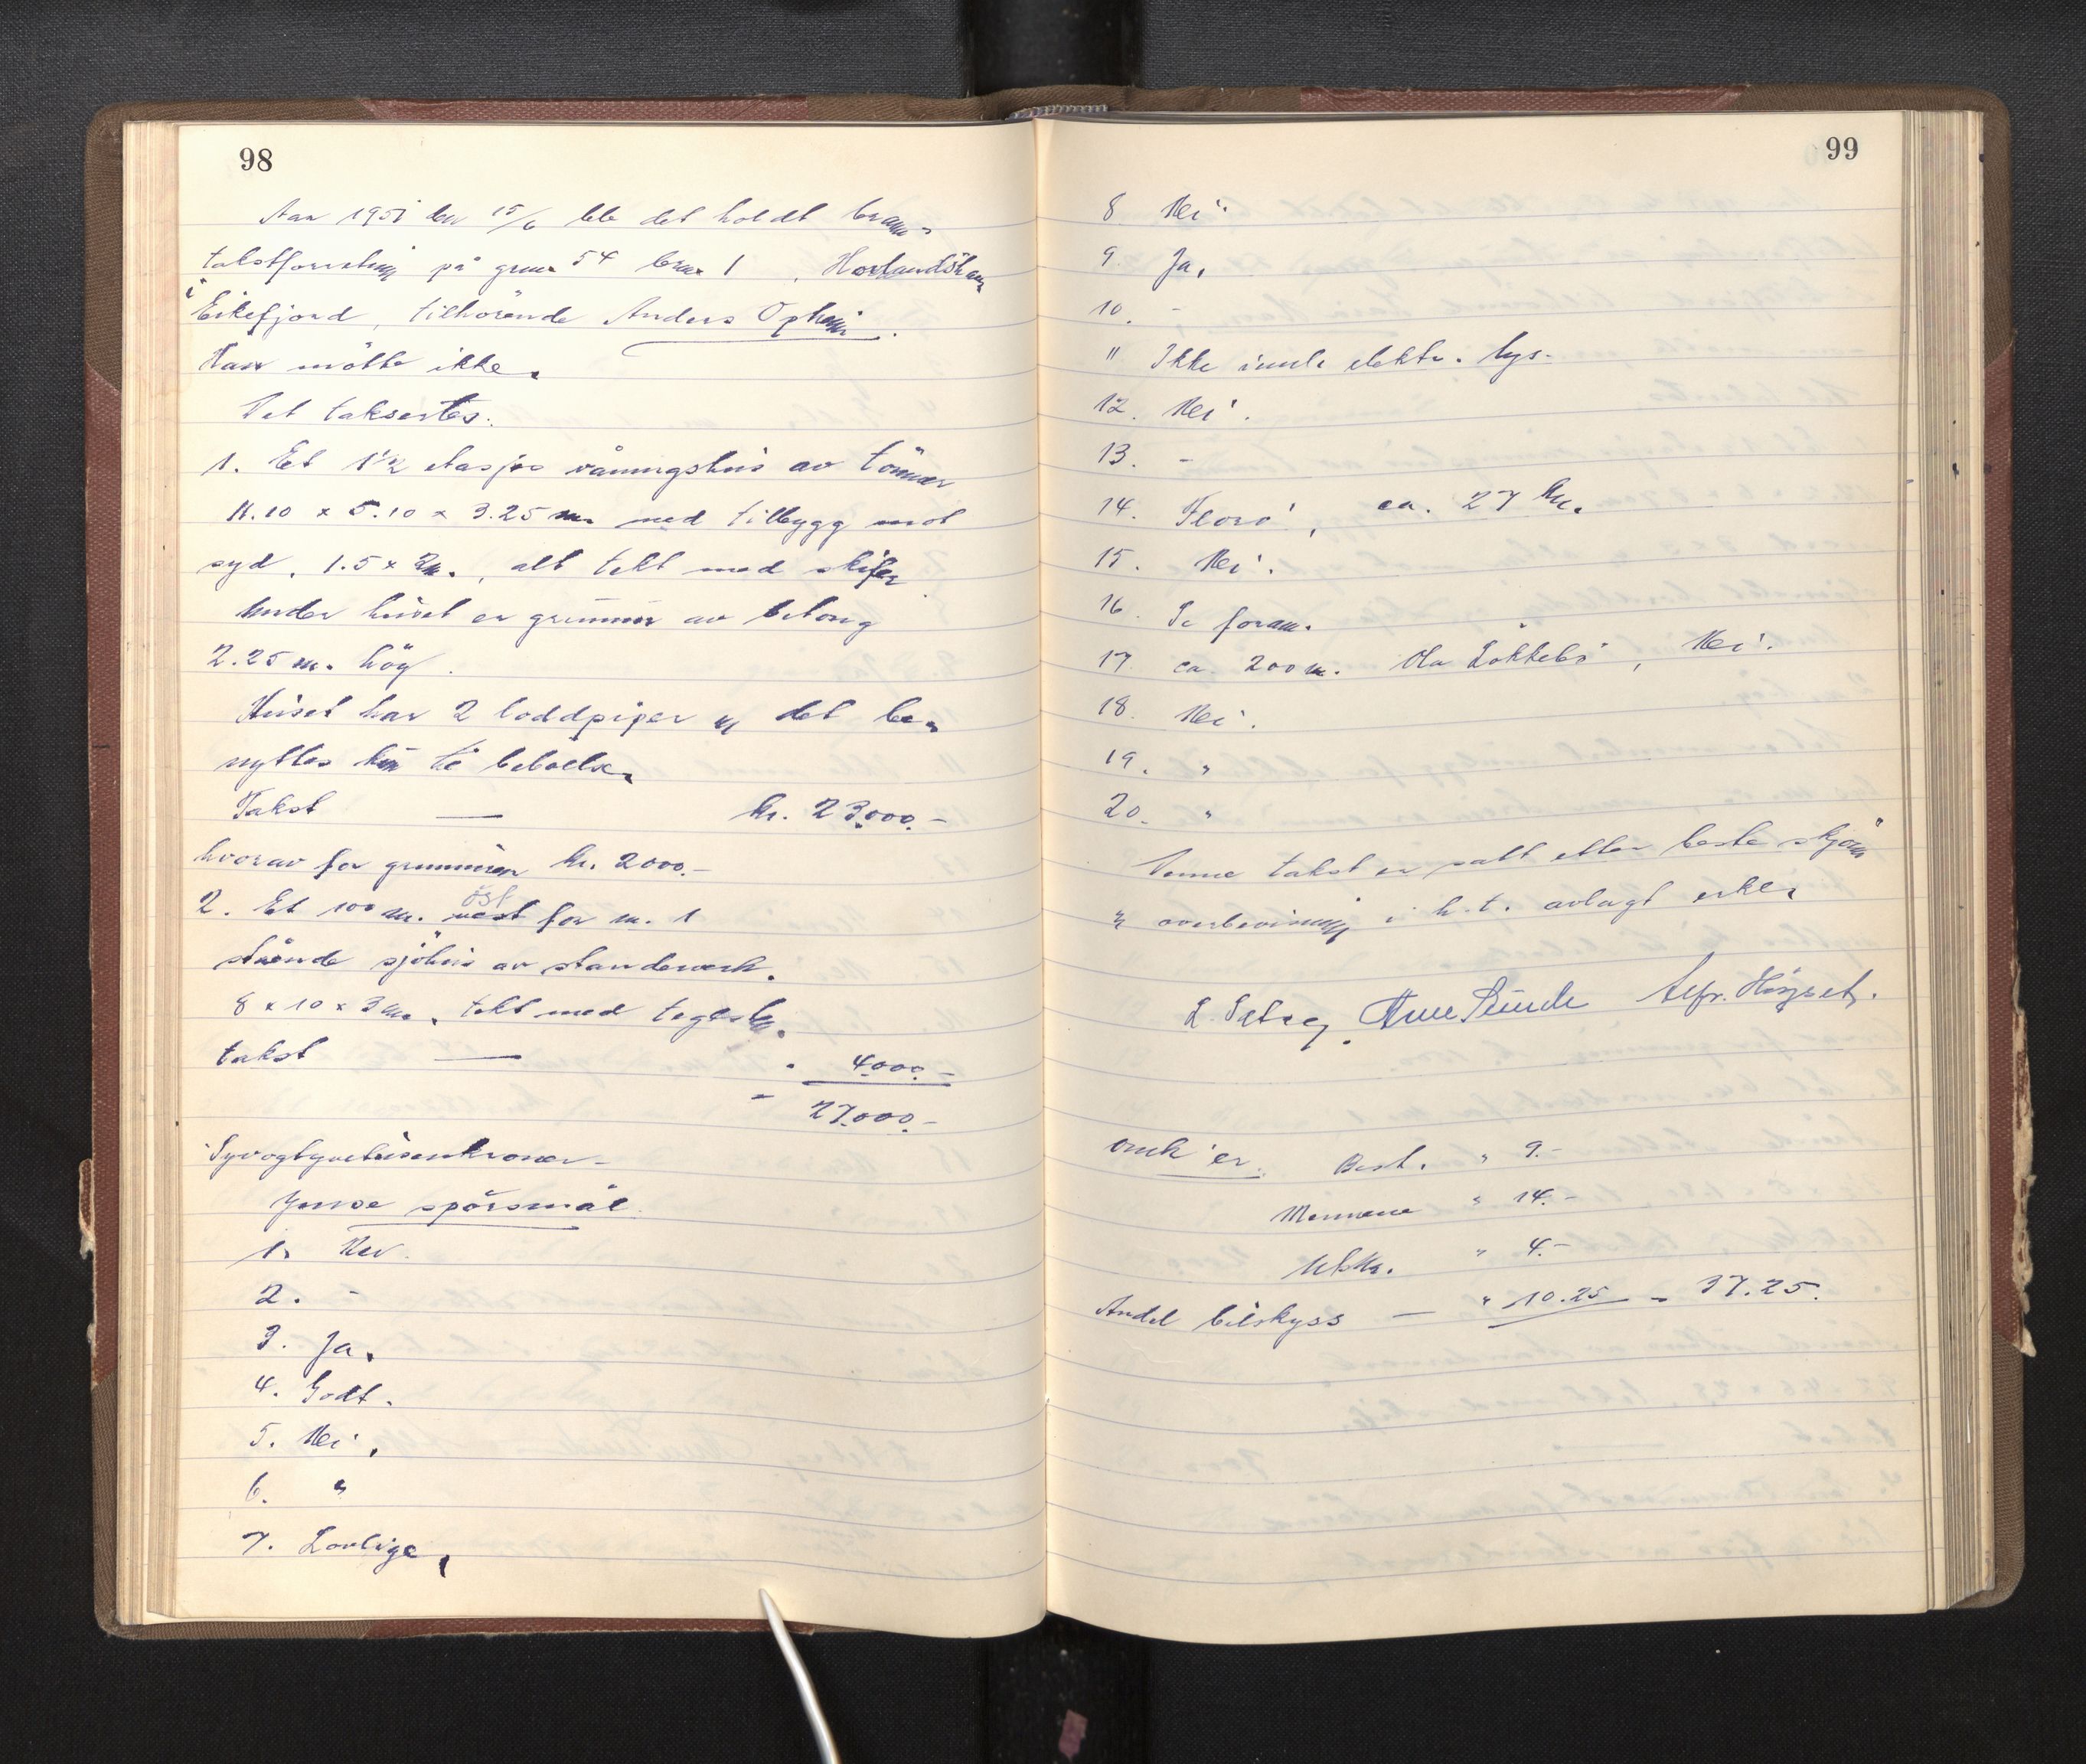 98
Aar 1951 den 15/6 ble det holdt brann-
takstforretning på gnr. 54 bnr. 1, Horlandshavn
i Eikefjord, tilhörende Anders Opheim.
Han mötte ikke.
Det taksertes.
1. Et 1½ etasjes våningshus av tömmer
11.10 x 5.10 x 3.25 m. med tilbygg mot
syd, 1.5 x 2m., alt tekt med skifer
Under huset er grunnmur av betong
2.25 m. höy.
Huset har 2 loddpiper og det be-
nyttes kun til beboelse.
Takst — kr. 23.000.-
hvorav for grunnmuren kr. 2000.-
2. Et 100 m. vest öst for nr. 1
stående sjöhus av standerverk.
8 x 10 x 3 m., tekt med teglsten.
takst — " 4.000.-
= 27.000.-
Syvogtyvetusenkroner.-
Jense spörsmål.
1. Nei.
2. -
3. Ja.
4. Godt.
5. Nei.
6. "
7. Lovlige.
99
8 Nei.
9. Ja.
10. -
11 Ikke innl. elektr. lys.
12. Nei.
13. -
14. Florö, ca. 27 km.
15. Nei.
16. Se foran.
17. ca. 200 m. Ola Lökkebö, Nei.
18. Nei.
19. "
20. "
Denne takst er satt etter beste skjönn
og overbevisning i h.t. avlagt erkl.
L. Sebög. Arne Sunde Alfr. Höyset.
omk'er. Best. " 9.-
Mennene " 14.-
Utskr. " 4.-
Andel bilskyss — " 10.25 = 37.25.